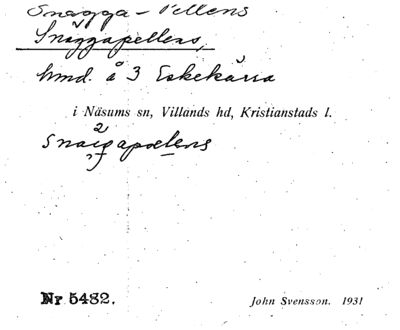 Snagga-Pellens
Snaggapellens,
hmd. å 3 Eskekärra
i Näsums sn, Villands hd, Kristianstads l.
Nr 5482.
John Svensson. 1931